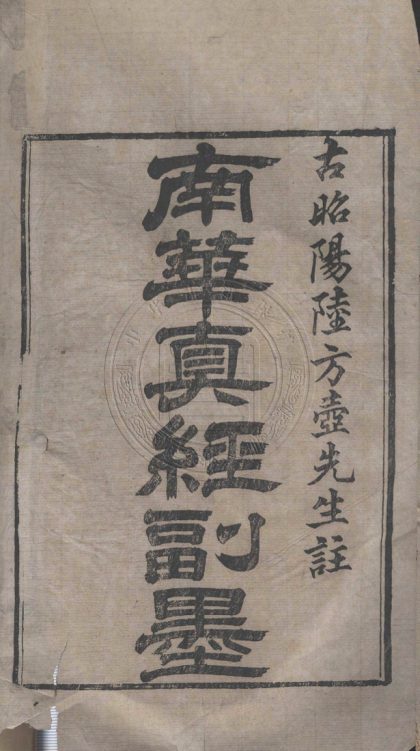 古昭陽陸方壺先生註
南華真經副墨